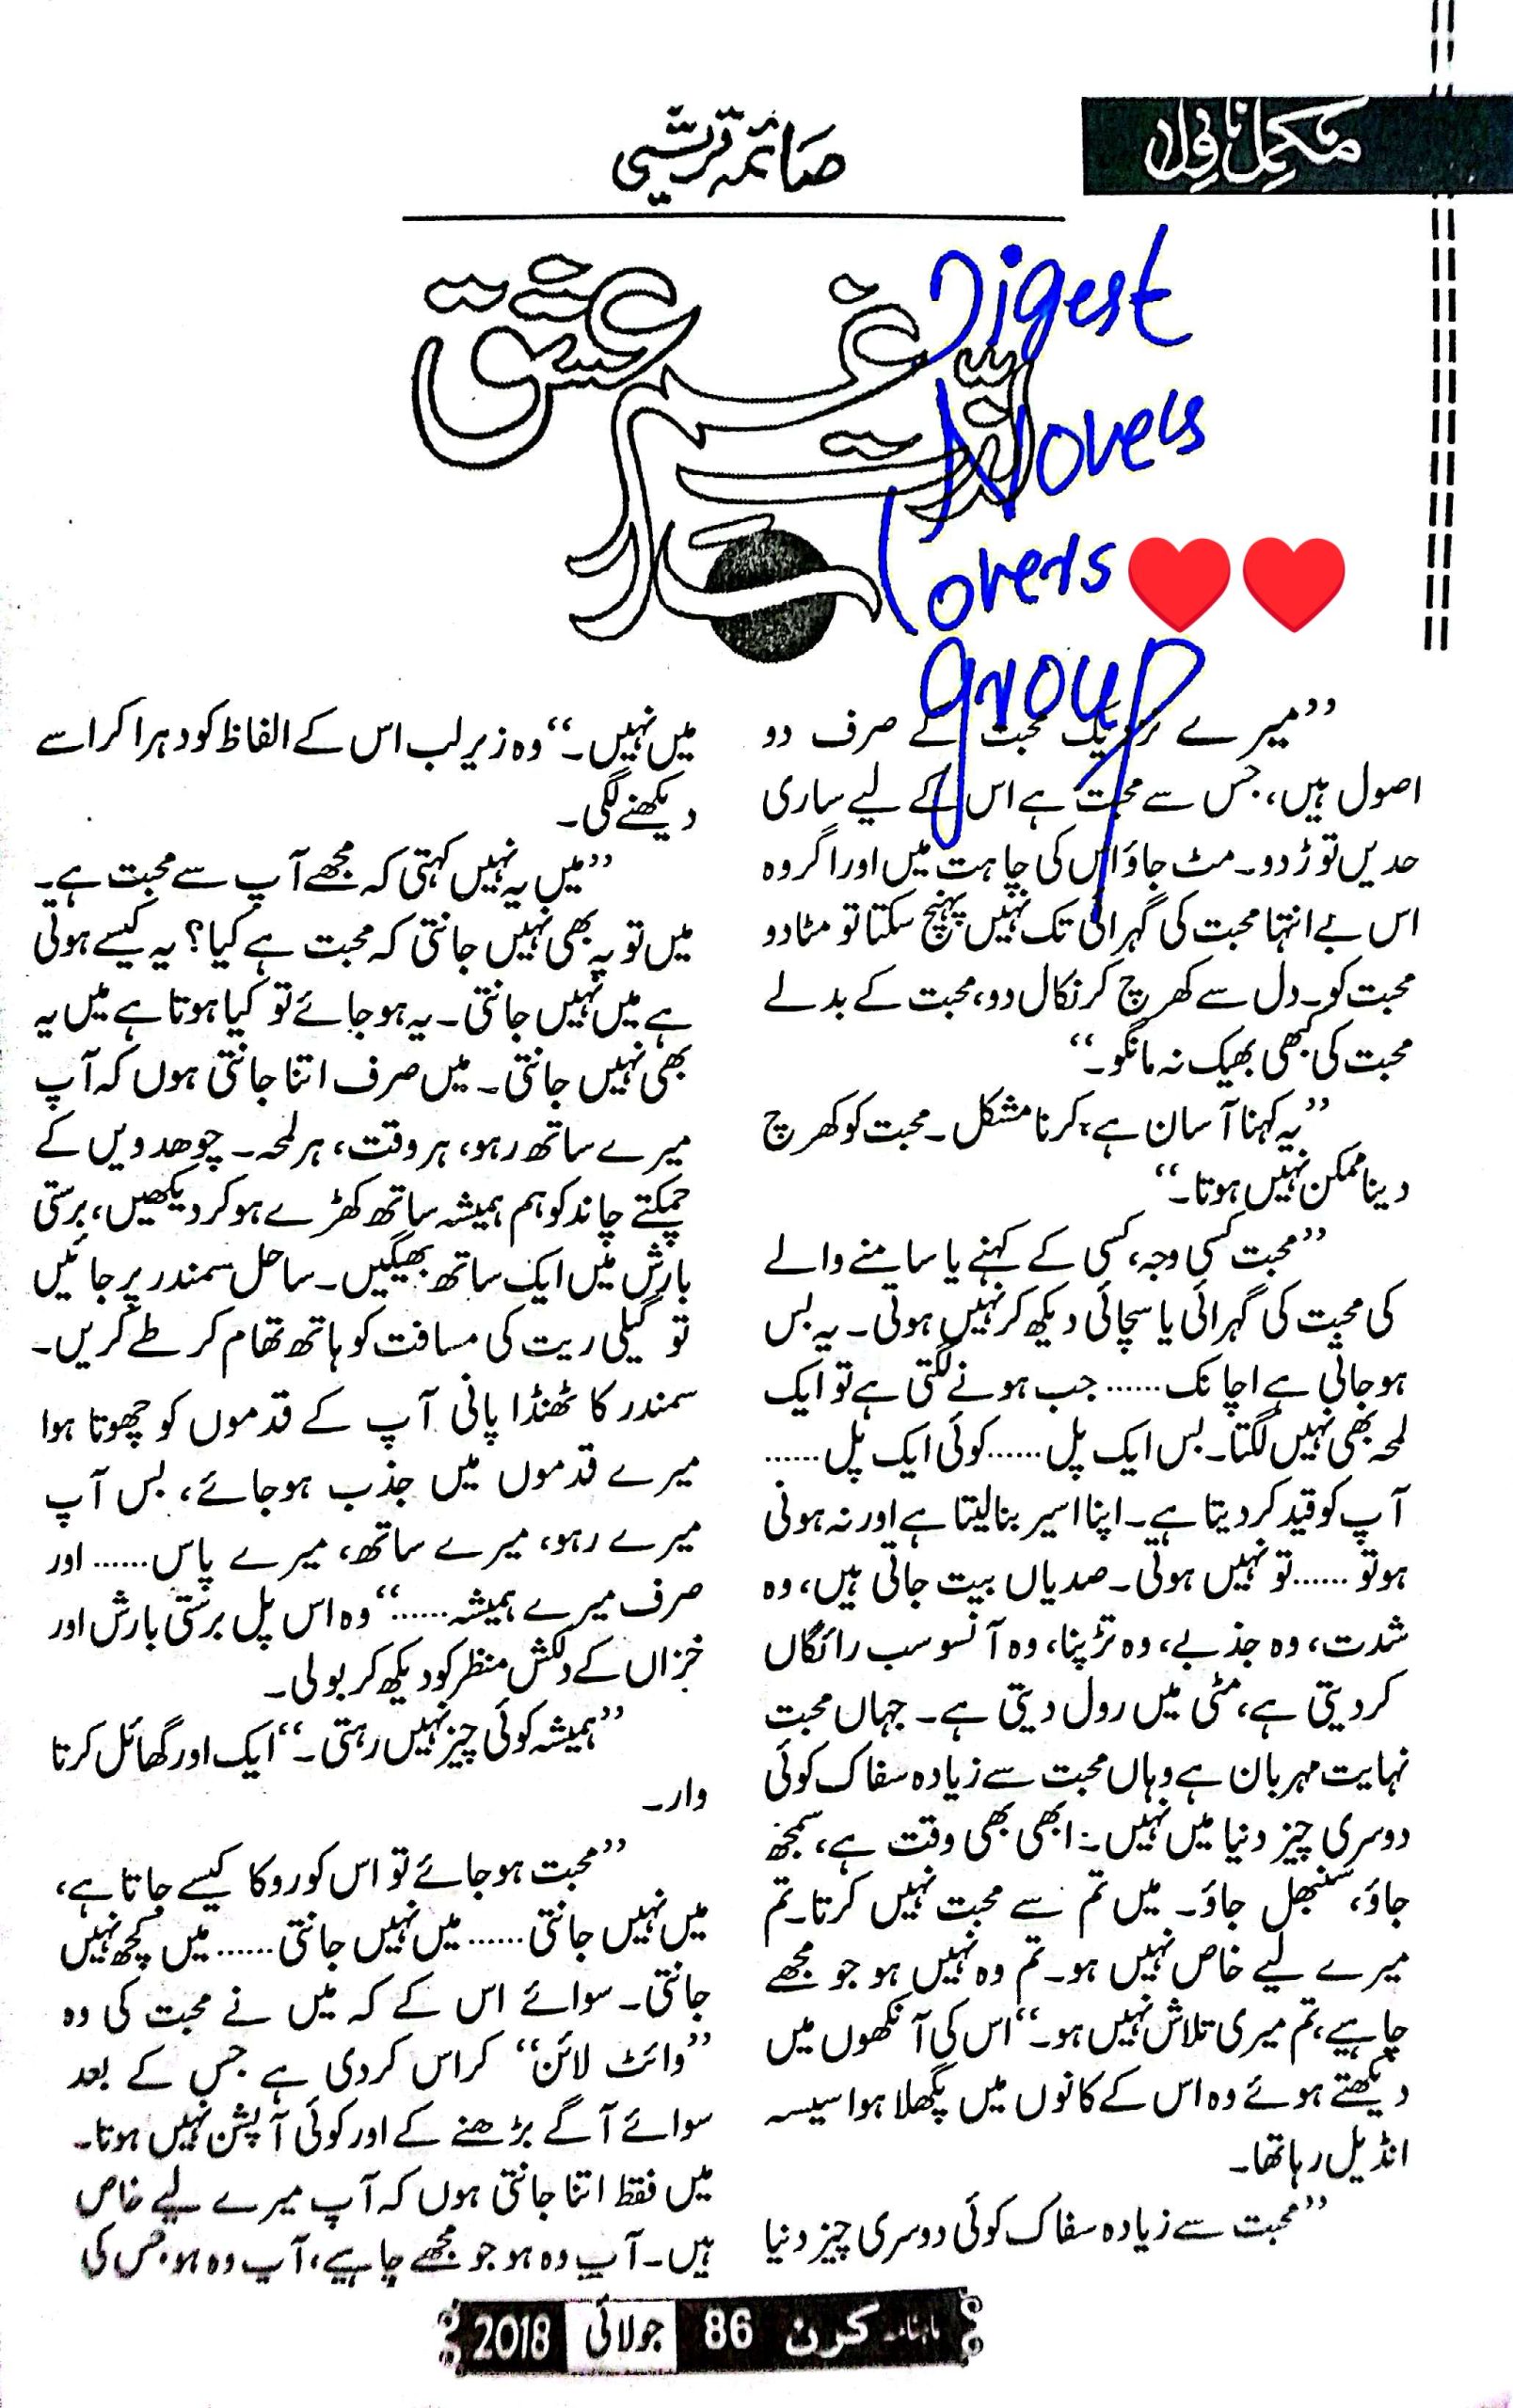 مکمل ناول
صائمہ قریشی
غم عشق
Digest
Novels
Lovers
group
’’میرے نزدیک محبت کے صرف دو
اصول ہیں، جس سے محبت ہے اس کے لیے ساری
حدیں توڑ دو۔ مٹ جاؤ اس کی چاہت میں اور اگر وہ
اس بے انتہا محبت کی گہرائی تک نہیں پہنچ سکتا تو مٹا دو
محبت کو۔ دل سے کھرچ کر نکال دو، محبت کے بدلے
محبت کی کبھی بھیک نہ مانگو۔‘‘
’’یہ کہنا آسان ہے، کرنا مشکل۔ محبت کو کھرچ
دینا ممکن نہیں ہوتا۔‘‘
’’محبت کسی وجہ، کسی کے کہنے یا سامنے والے
کی محبت کی گہرائی یا سچائی دیکھ کر نہیں ہوتی۔ یہ بس
ہو جاتی ہے اچانک...... جب ہونے لگتی ہے تو ایک
لمحہ بھی نہیں لگتا۔ بس ایک پل......کوئی ایک پل......
آپ کو قید کر دیتا ہے۔ اپنا اسیر بنا لیتا ہے اور نہ ہونی
ہو تو ......تو نہیں ہوتی۔ صدیاں بیت جاتی ہیں، وہ
شدت، وہ جذبے، وہ تڑپنا، وہ آنسو سب رائگاں
کر دیتی ہے، مٹی میں رول دیتی ہے۔ جہاں محبت
نہایت مہربان ہے وہاں محبت سے زیادہ سفاک کوئی
دوسری چیز دنیا میں نہیں۔ ابھی بھی وقت ہے، سمجھ
جاؤ، سنبھل جاؤ۔ میں تم سے محبت نہیں کرتا۔ تم
میرے لیے خاص نہیں ہو۔ تم وہ نہیں ہو جو مجھے
چاہیے، تم میری تلاش نہیں ہو۔‘‘ اس کی آنکھوں میں
دیکھتے ہوئے وہ اس کے کانوں میں پگھلا ہوا سیسہ
انڈیل رہا تھا۔
’’محبت سے زیادہ سفاک کوئی دوسری چیز دنیا
میں نہیں۔‘‘ وہ زیر لب اس کے الفاظ کو دہرا کر اسے
دیکھنے لگی۔
’’میں یہ نہیں کہتی کہ مجھے آپ سے محبت ہے۔
میں تو یہ بھی نہیں جانتی کہ محبت ہے کیا؟ یہ کیسے ہوتی
ہے میں نہیں جانتی۔ یہ ہو جائے تو کیا ہوتا ہے میں یہ
بھی نہیں جانتی۔ میں صرف اتنا جانتی ہوں کہ آپ
میرے ساتھ رہو، ہر وقت، ہر لمحہ۔ چودھویں کے
چمکتے چاند کو ہم ہمیشہ ساتھ کھڑے ہو کر دیکھیں، برستی
بارش میں ایک ساتھ بھیگیں۔ ساحل سمندر پر جائیں
تو گیلی ریت کی مسافت کو ہاتھ تھام کر طے کریں۔
سمندر کا ٹھنڈا پانی آپ کے قدموں کو چھوتا ہوا
میرے قدموں میں جذب ہو جائے، بس آپ
میرے رہو، میرے ساتھ، میرے پاس...... اور
صرف میرے ہمیشہ......‘‘ وہ اس پل برستی بارش اور
خزاں کے دلکش منظر کو دیکھ کر بولی۔
’’ہمیشہ کوئی چیز نہیں رہتی۔‘‘ ایک اور گھائل کرتا
وار۔
’’محبت ہو جائے تو اس کو روکا کیسے جاتا ہے،
میں نہیں جانتی...... میں نہیں جانتی...... میں کچھ نہیں
جانتی۔ سوائے اس کے کہ میں نے محبت کی وہ
’’وائٹ لائن‘‘ کراس کر دی ہے جس کے بعد
سوائے آگے بڑھنے کے اور کوئی آپشن نہیں ہوتا۔
میں فقط اتنا جانتی ہوں کہ آپ میرے لیے خاص
ہیں۔ آپ وہ ہو جو مجھے چاہیے، آپ وہ ہو، جس کی
ماہنامہ کرن 86 جولائی 2018